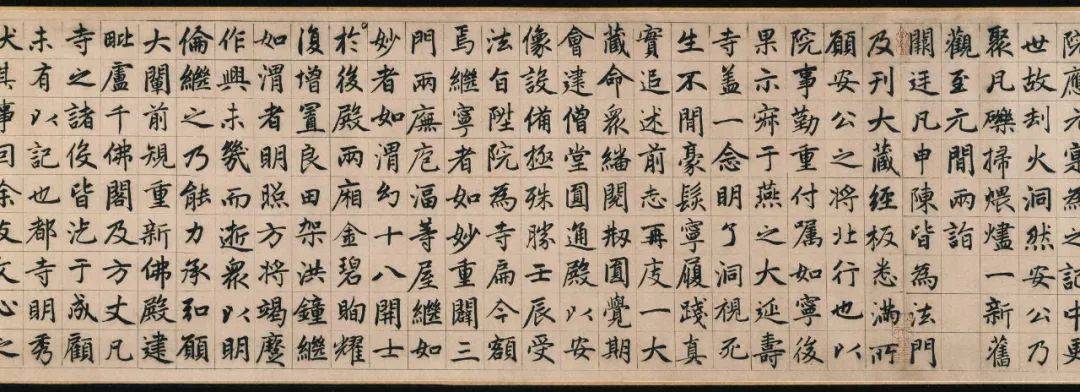 院應元寔為之記中更
世故刦火洞然安公乃
聚凡礫掃煨燼一新舊
觀至元間兩詣
闕廷凡申陳皆為法門
及刊大藏經板悉滿所
願安公之將北行也以
院事勤重付囑如寧後
果示寂于燕之大延壽
寺盖一念明了洞視死
生不間豪髮寧履踐真
實追述前志再庋一大
藏命衆繙閱剙圓覺期
會建僧堂圓通殿以安
像設備極殊勝壬辰受
法旨陞院為寺扁今額
焉繼寧者如妙重闢三
門兩廡庖湢等屋繼如
妙者如渭幻十八開士
於後殿兩廂金碧眴耀
復增置良田架洪鐘繼
如渭者明照方將竭蹷
作興未幾而逝衆以明
倫繼之乃能力承弘願
大闡前規重新佛殿建
毗盧千佛閣及方丈凡
寺之諸役皆汔于成顧
未有以記也都寺明秀
其事囙余友文心之